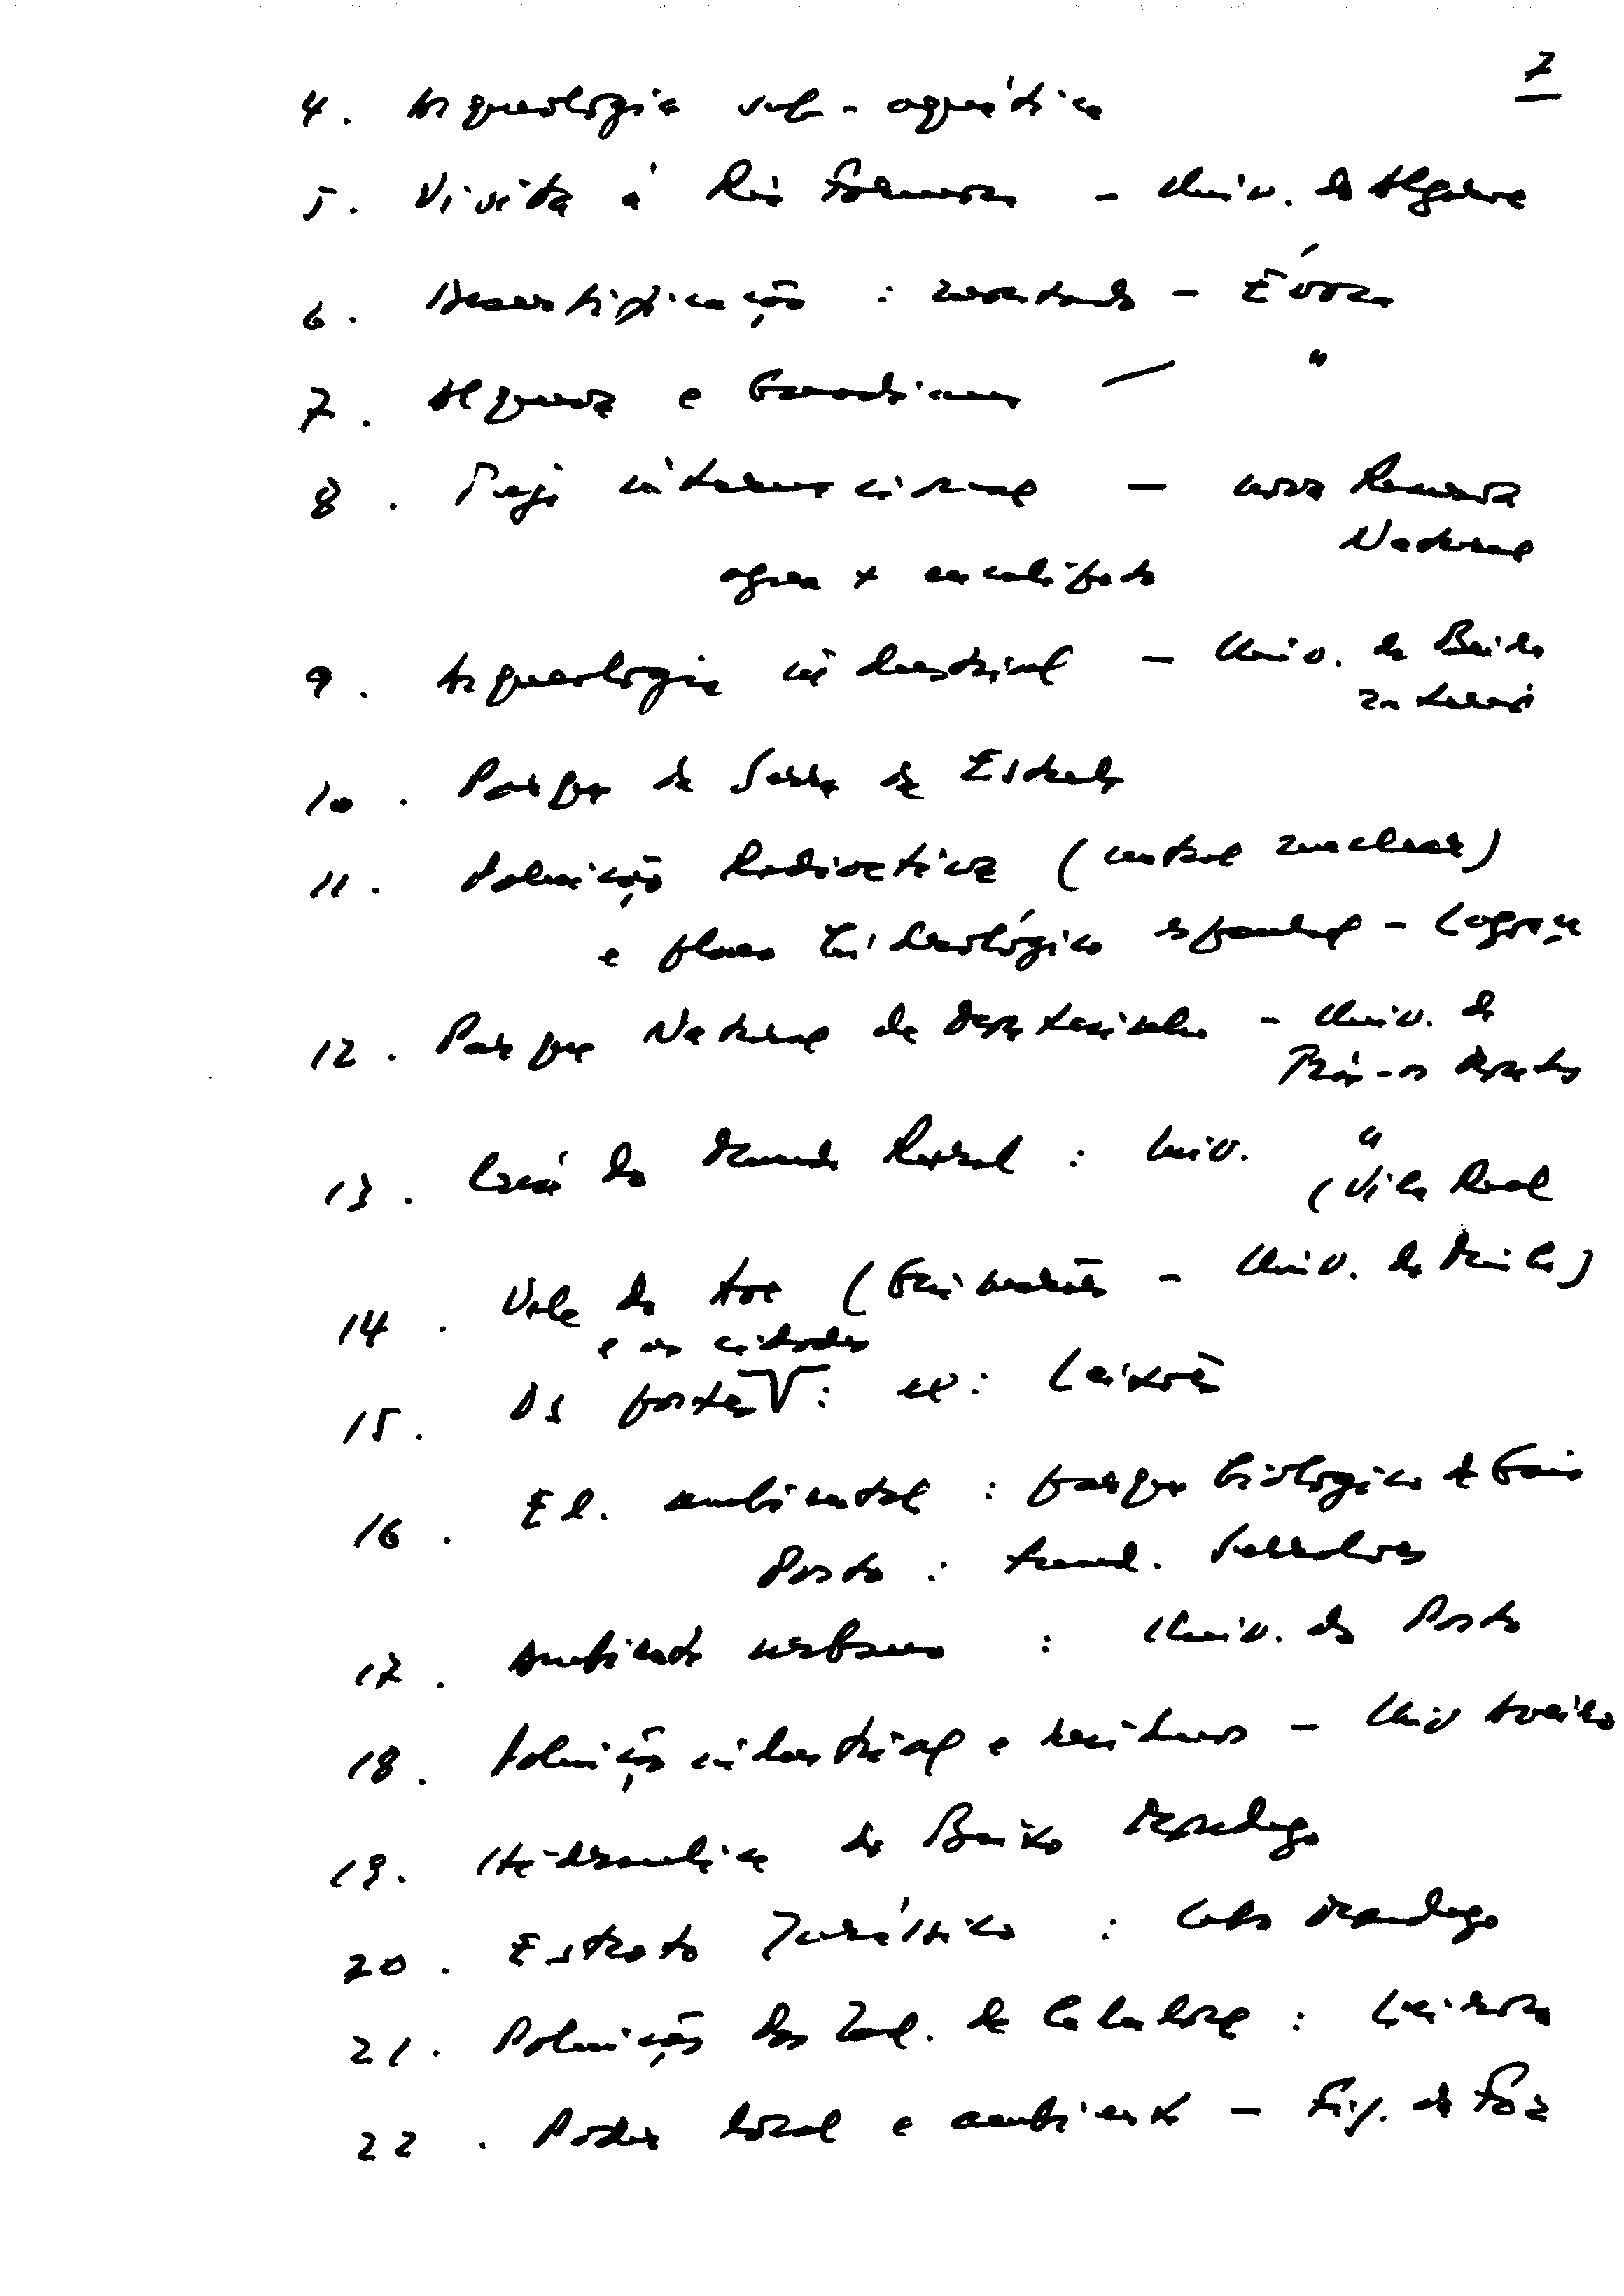 7
4. Arqueologia sub-aquática
5. Visita à Ria Formosa - Univ. do Algarve
6. Desertificação : montado - Évora
7. Alqueva e Guadiana — "
8. Tejo internacional — Reserva
Natural
água + eucalipto
9. Arqueologia industrial — Univ. da Beira
Interior
10. Parque da Serra da Estrela
11. Poluição Radioactiva (central nuclear)
e plano hidrológico espanhol -
12. Parque Natural de Montesinho - Univ. de
Trás-os Montes
13. do Mundo Rural : Univ. "
(Vila Real
14. Vale do Ave (Guimarães - Univ. do Minho)
e as cidades
15. Os portos : ex: Leixões
16. Ed. ambiental : parque biológico de Gaia
Porto : Fund. Serralves
17. Ambiente urbano : Univ. do Porto
18. Poluição industrial e resíduos - Univ Aveiro
19. Hidraulica do Baixo Mondego
20. Estrato Jurássico : Cabo Mondego
21. Poluição das de : Leirosa
22. Poder local e ambiente - Fig. da Foz